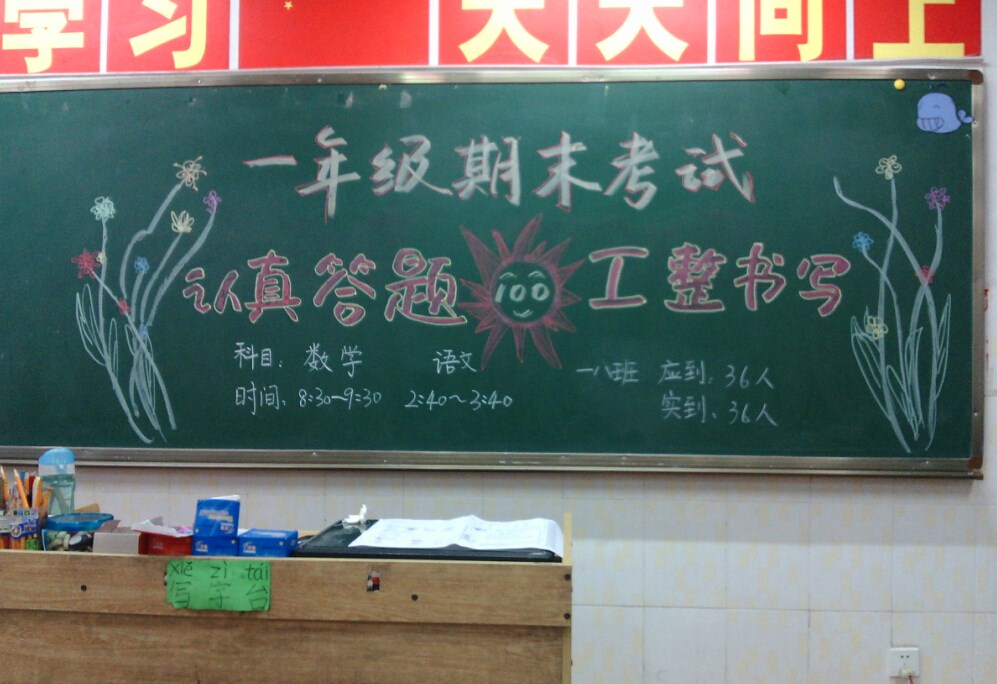 学习 天天向上
一年级期末考试
认真答题 100 工整书写
科目: 数学 语文
时间: 8:30~9:30 2:40~3:40
一八班 应到: 36人
实到: 36人
xiě zì tái
写字台